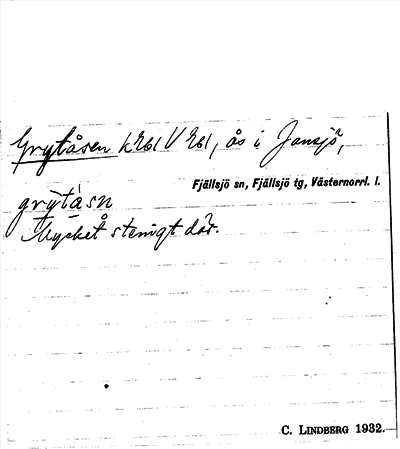 Grytåsen k261 V 261, ås i Jansjö,
Fjällsjö sn, Fjällsjö tg, Västernorrl. l.
grýtåsn
Mycket stenigt där.
C. LINDBERG 1932.